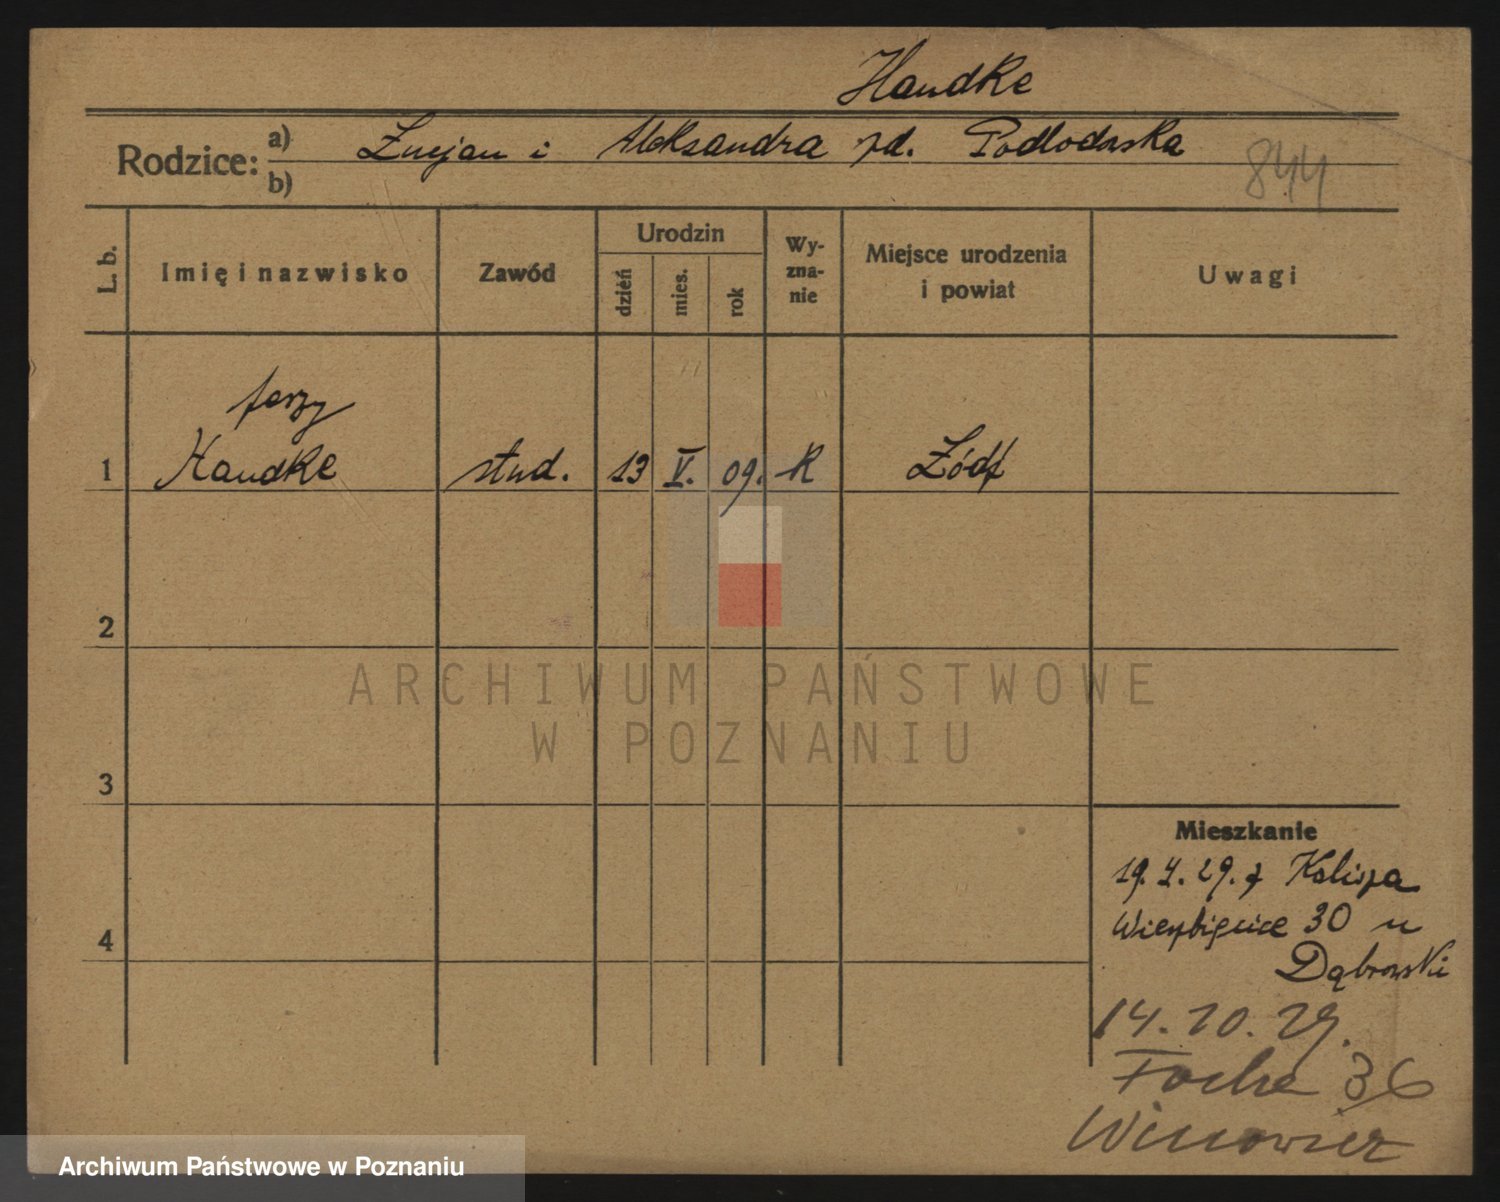 Handke
Rodzice: a) Lucjan i Aleksandra zd. Podlodowska
b)
844
L. b. Imię i nazwisko Zawód Urodzin dzień mies. rok Wyzna-nie Miejsce urodzenia i powiat Uwagi
Jerzy
1 Handke stud. 13 V. 09. R Łódź
2
3
4
Mieszkanie
19. 4. 29. z Kalisza
Wierzbięcice 30 u
Dąbrowski
14. 10. 29.
Focha 36
ARCHIWUM PAŃSTWOWE
W POZNANIU
Archiwum Państwowe w Poznaniu